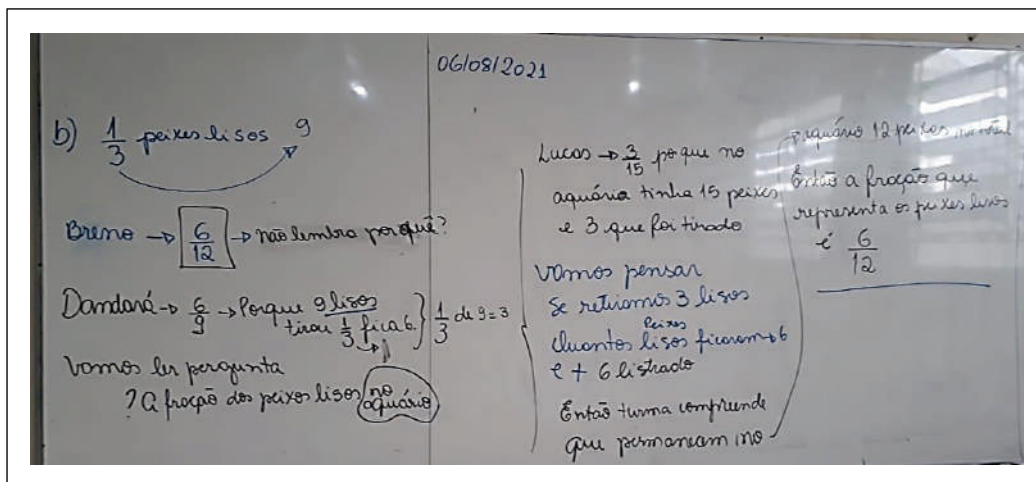 06/08/2021
b) 1/3 peixes lisos 9
Breno → 6/12 → não lembra porquê?
Dandará → 6/9 → Porque 9 lisos
tirou 1/3 fica 6. } 1/3 de 9 = 3
Vamos ler pergunta
? a fração dos peixes lisos no
aquário
Lucas → 3/15 porque no
aquário tinha 15 peixes
e 3 que foi tirado
Vamos pensar
Se retiramos 3 lisos
Peixes
Quantos lisos ficaram → 6
e + 6 listrado
Então turma compreende
que permaneam no
aquário 12 peixes
Então a fração que
representa os peixes lisos
é 6/12